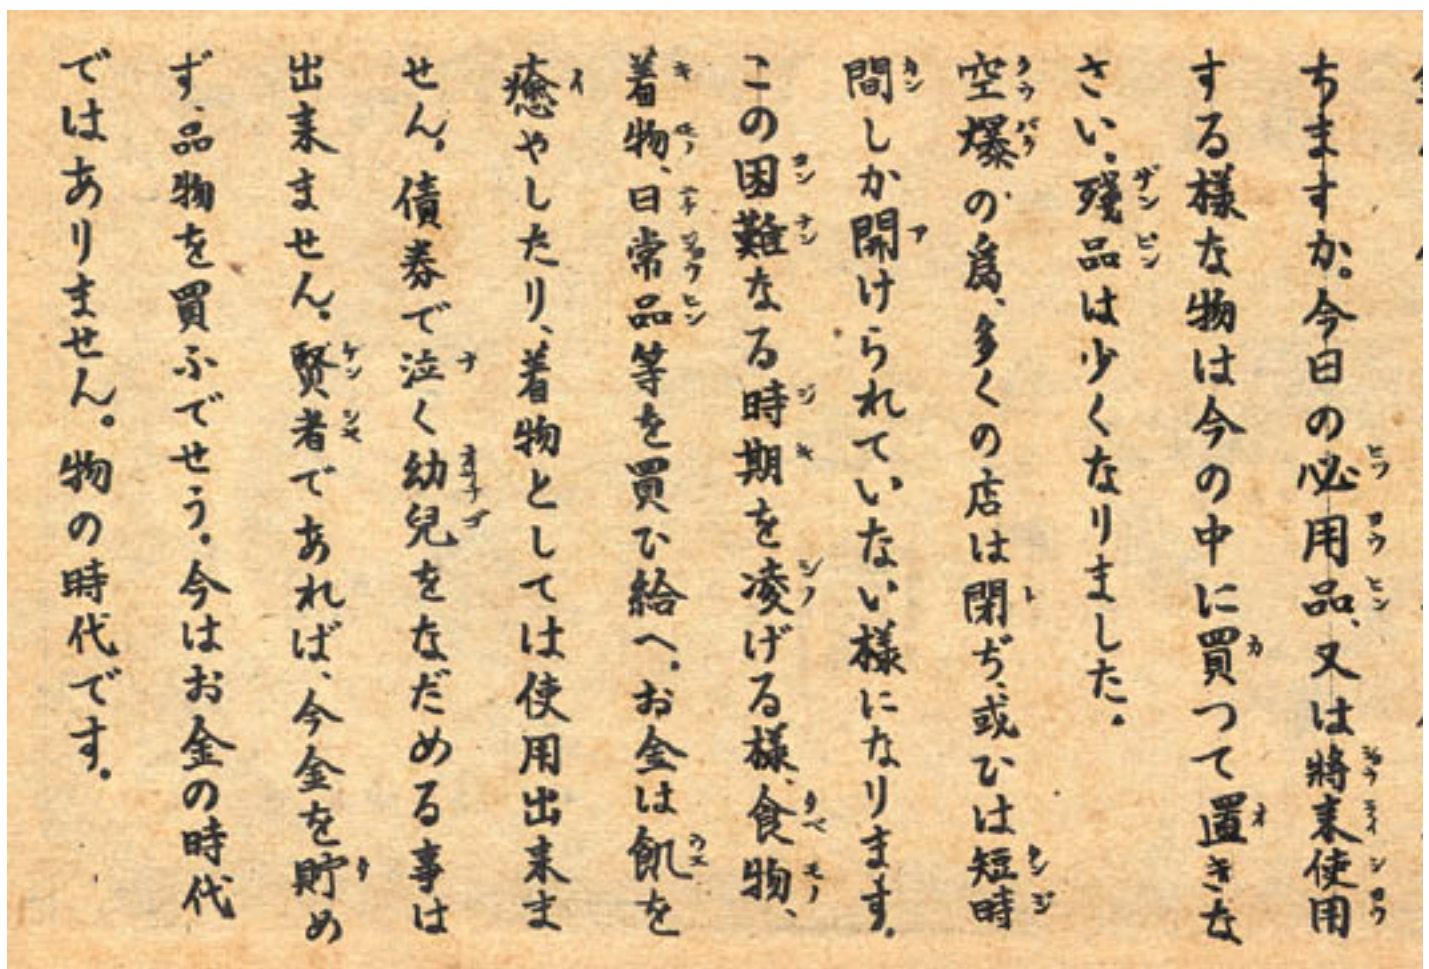 ちますか。今日の必用品、又は將来使用
する様な物は今の中に買つて置きな
さい、殘品は少くなりました。
空爆の爲、多くの店は閉ぢ、或ひは短時
間しか開けられていない様になります。
この困難なる時期を凌げる様、食物、
着物、日常品等を買ひ給へ。お金は飢を
癒やしたり、着物としては使用出来ま
せん。債券で泣く幼兒をなだめる事は
出来ません。賢者であれば、今金を貯め
ず、品物を買ふでせう。今はお金の時代
ではありません。物の時代です。